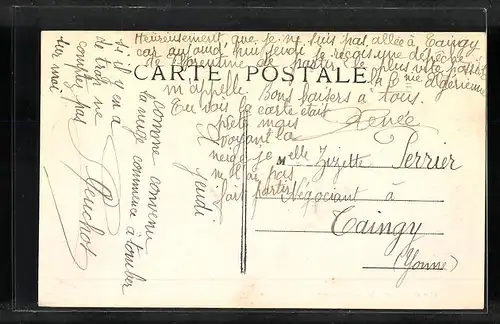 Heureusement que je ne suis pas allée à Taingy
car aujourd'hui jeudi je reçois une dépêche
de Florentine de partir le plus vite possible
CARTE POSTALE
la Cie algérienne
m'appelle. Bons baisers à tous.
Renée
Tu vois la carte était
prête mais
voyant la
neige je
ne l'ai pas
fait partir
Melle Zizette Perrier
Négociant à
Taingy
(Yonne)
à jeudi
comme convenu
la neige commence à tomber
s'il y en a
de trop ne
comptez pas
sur moi
Peuchot